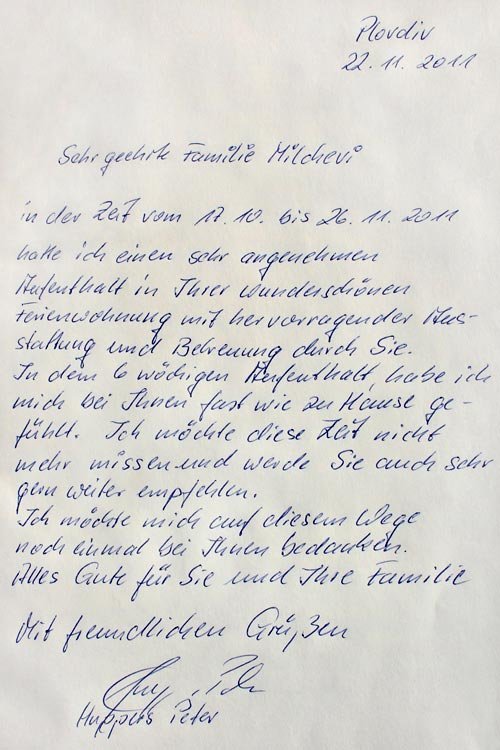 Plovdiv
22. 11. 2011
Sehr geehrte Familie Milchevi
in der Zeit vom 17. 10. bis 26. 11. 2011
hatte ich einen sehr angenehmen
Aufenthalt in Ihrer wunderschönen
Ferienwohnung mit hervorragender Aus-
stattung und Betreuung durch Sie.
In dem 6 wöchigen Aufenthalt, habe ich
mich bei Ihnen fast wie zu Hause ge-
fühlt. Ich möchte diese Zeit nicht
mehr missen und werde Sie auch sehr
gern weiter empfehlen.
Ich möchte mich auf diesem Wege
noch einmal bei Ihnen bedanken.
Alles Gute für Sie und Ihre Familie
Mit freundlichen Grüßen
Peter